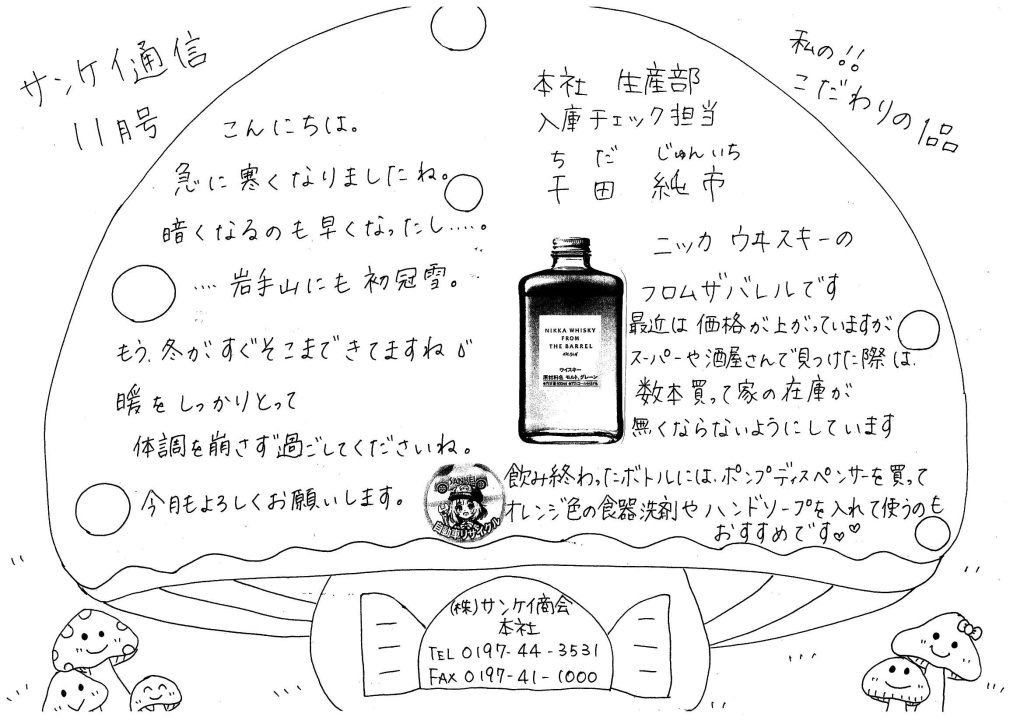 サンケイ通信
11月号
こんにちは。
急に寒くなりましたね。
暗くなるのも早くなったし……。
…. 岩手山にも初冠雪。
もう、冬がすぐそこまできてますね
暖をしっかりとって
体調を崩さず過ごしてくださいね。
今月もよろしくお願いします。
私の!!
こだわりの1品
本社 生産部
入庫チェック担当
ちだ じゅんいち
千田 純市
ニッカ ウヰスキーの
フロムザバレルです
最近は価格が上がっていますが
スーパーや酒屋さんで見つけた際は、
数本買って家の在庫が
無くならないようにしています
飲み終わったボトルには、ポンプディスペンサーを買って
オレンジ色の食器洗剤やハンドソープを入れて使うのも
おすすめです♡♡
NIKKA WHISKY
FROM
THE BARREL
ウイスキー
原材料名 モルト、グレーン
SANKEI
自動車リサイクル
(株)サンケイ商会
本社
TEL 0197-44-3531
FAX 0197-41-1000